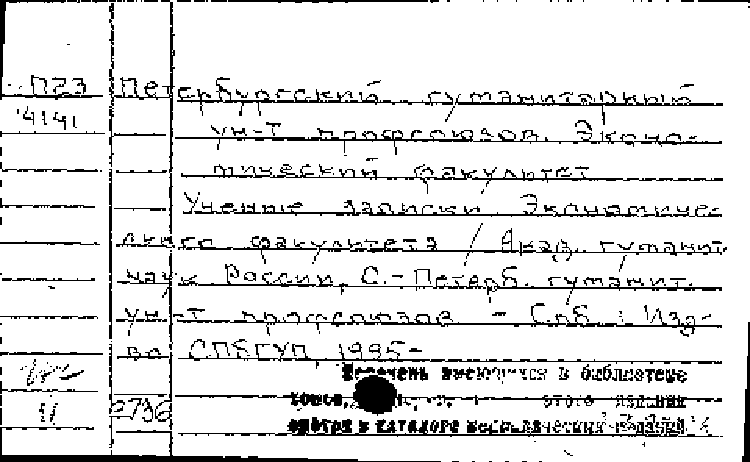 П23 Петербургский гуманитарный
4141 ун-т профсоюзов. Эконо-
мический факультет
Ученые записки Экономиче-
ского факультета / Акад. гуманит.
наук России, С.-Петерб. гуманит.
ун-т профсоюзов - Спб. : Изд-
во СПбГУП, 1995-
Перечень имеющихся в библиотеке
томов, этого издания
11 2736 смотри в каталоге периодических изданий